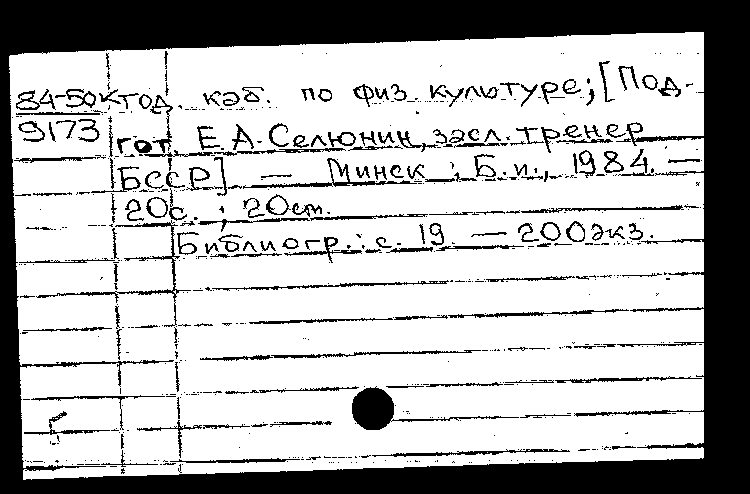 84-50к тод. каб. по физ. культуре; [Под-
9173 гот. Е.А.Селюнин, засл. тренер
БССР] — Минск : Б.и., 1984. —
20с. ; 20см.
Библиогр.: с. 19. — 200экз.
Б